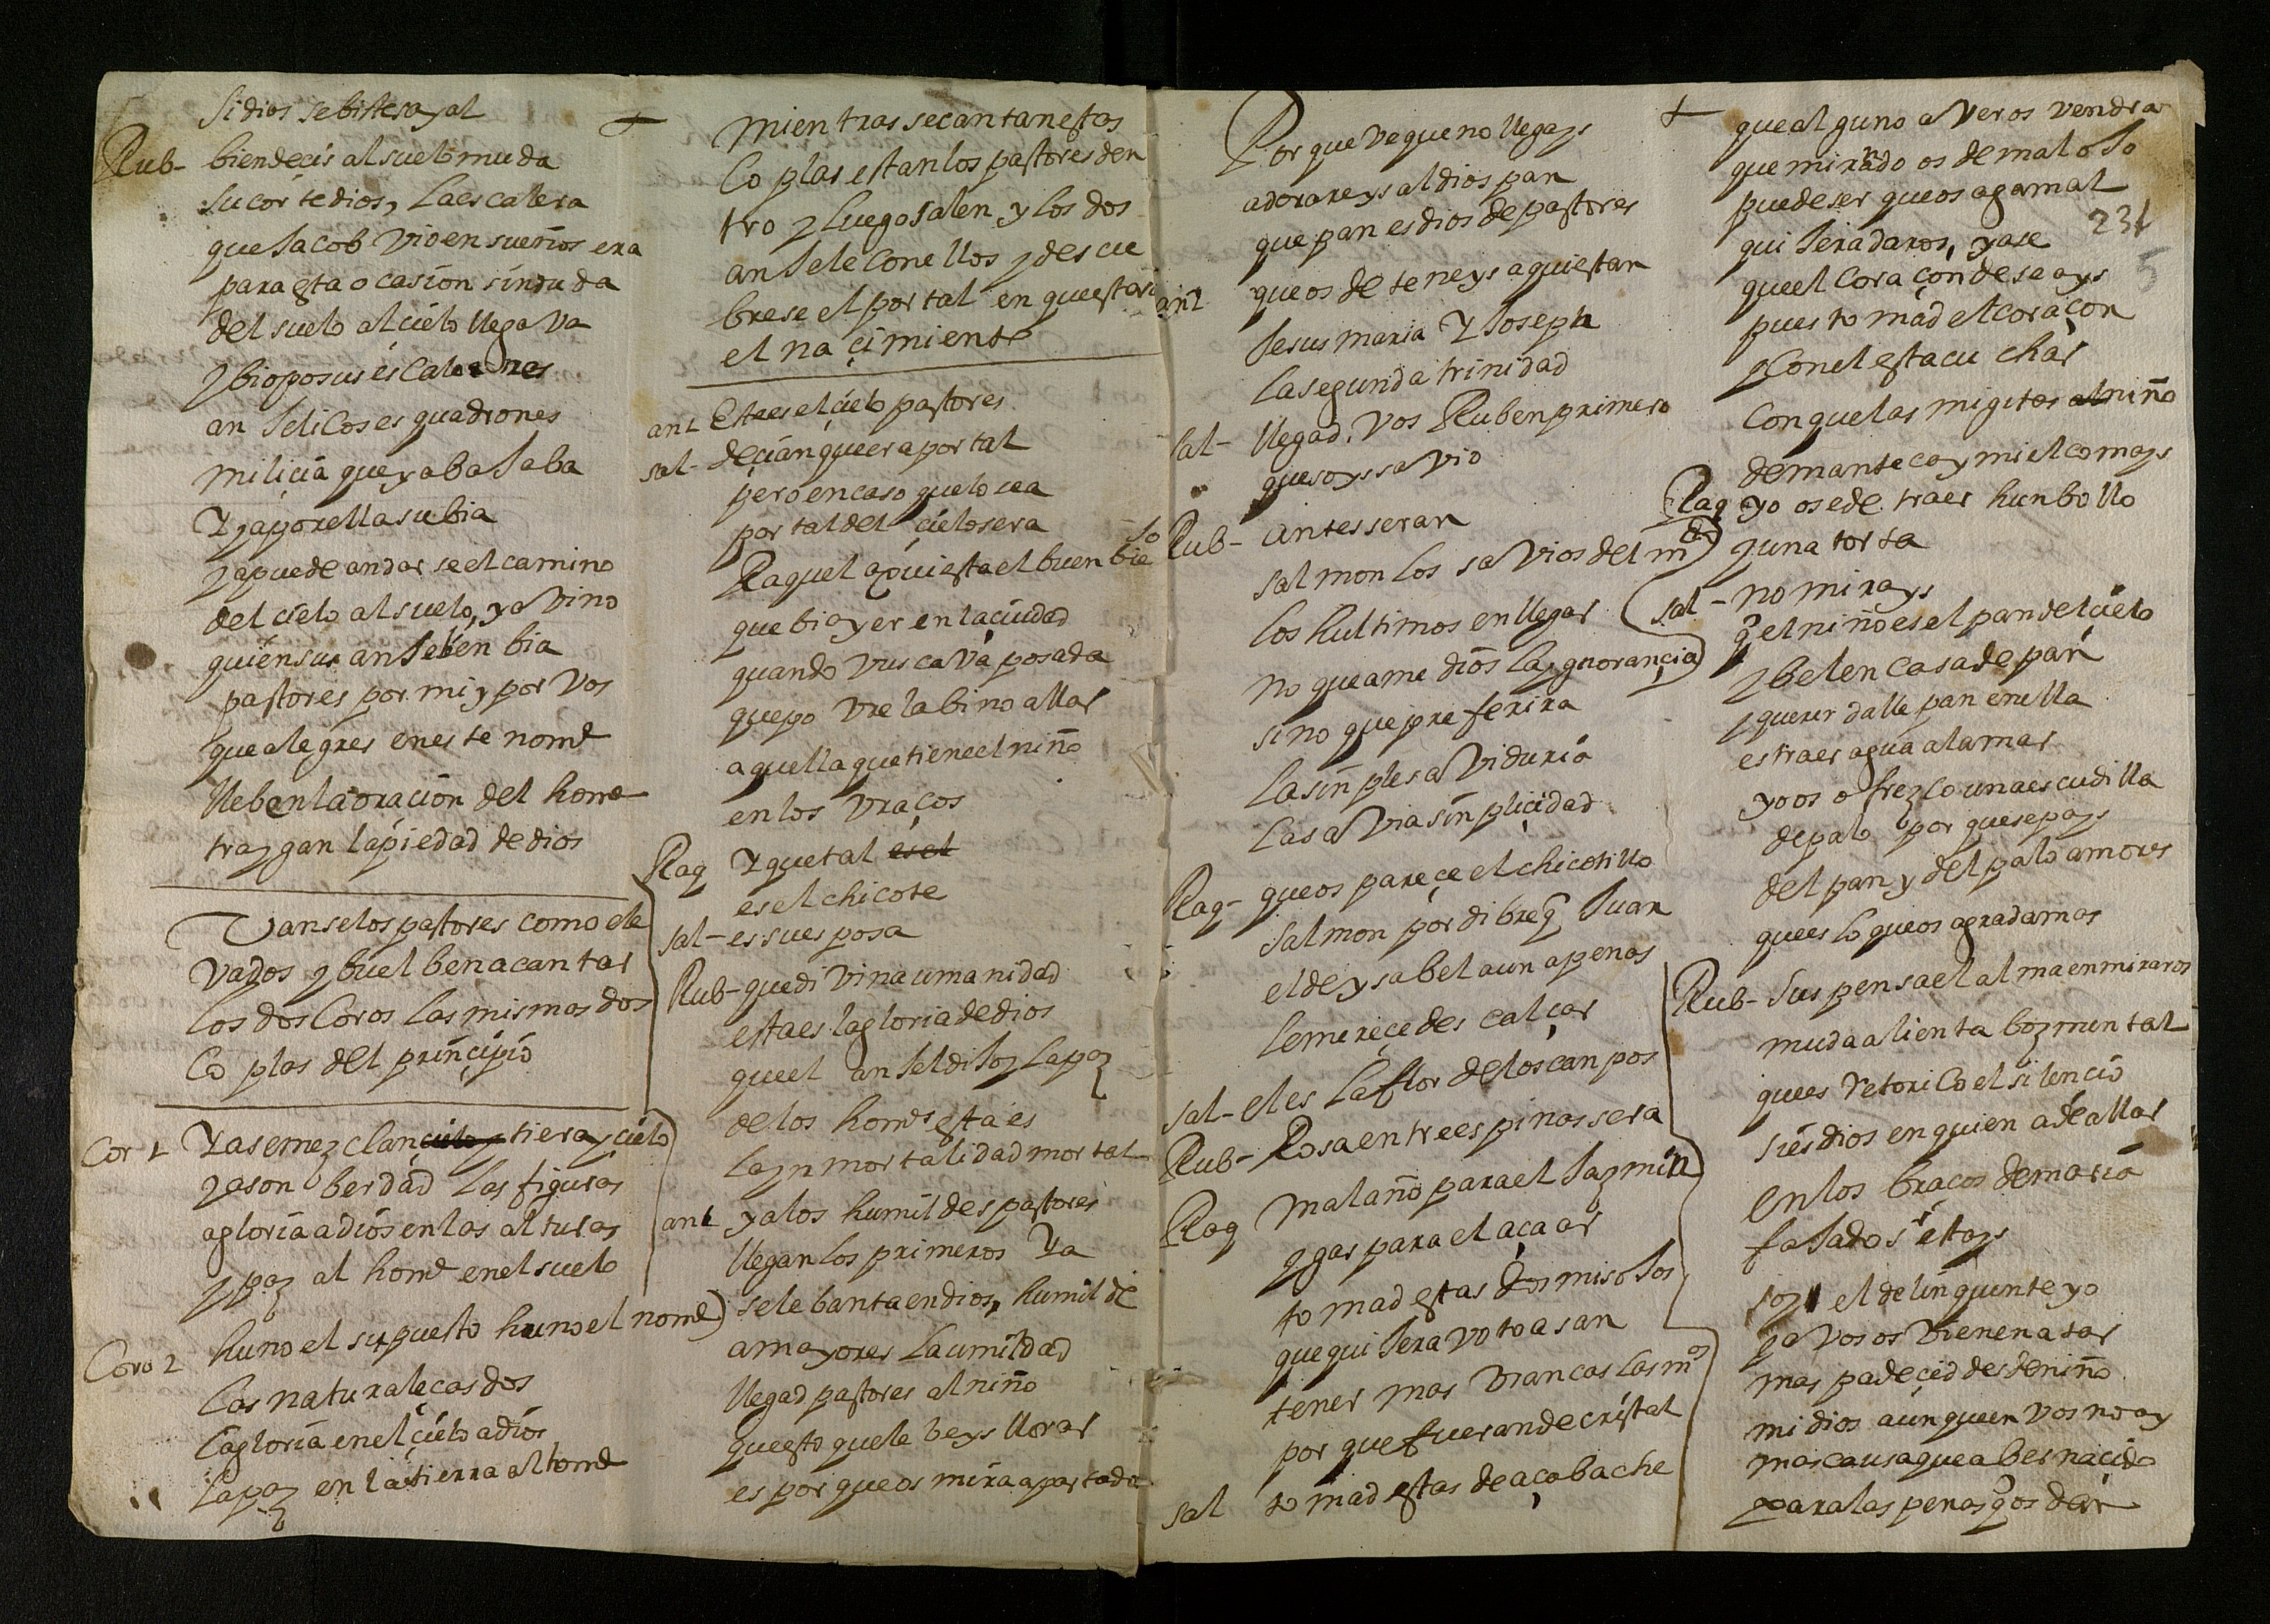 si dios se biste sayal
Rub- bien decis al suelo muda
su corte dios, la escalera
que Jacob vio en sueños era
para esta ocasion sin duda
del suelo al cielo llegava
y bio por sus escalones
anJelicos esquadrones
miliçia que ya baJaba
Y ya por ella subia
ya puede andarse el camino
del cielo al suelo, ya vino
quien sus anJeles en bia
pastores por mi y por vos
que alegres en este nomе
lleben la oraçion del home
traygan la piedad de dios
Vanse los pastores como ele
vados y buelben a cantar
los dos coros las mismas dos
coplas del prinçipio
Cor 1 Ya se mezclan çielo y tiera y çielo
ya son berdad las figuras
a gloria a dios en las alturas
y paz al home en el suelo
Coro 2 huno el supuesto huno el nome
las naturaleças dos
la gloria en el çielo a dios
la paz en la tierra al home
+
mientras se cantan estas
coplas estan los pastores den
tro y luego salen y los dos
anJeles con ellos y descu
brese el portal en que estara
el naçimiento
an 2 Este es el çielo pastores
sal- deçian que era portal
pero en caso que lo sea
portal del çielo sera
Raquel aqui esta el buen bieJo
que bi ayer en la çiudad
quando vuscava posada
que povre la bino allar
aquella que tiene el niño
en los vraços
Raq Y que tal es el
es el chicote
sal- es su esposa
Rub- que divina umanidad
esta es la gloria de dios
que el anJel diJo y la paz
de los homes esta es
la ynmortalidad mortal
an 1 ya los humildes pastores
llegan los primeros Ya
se lebanta en dios, humilde
a mayores la umildad
llegad pastores al niño
que esto que le beys llorar
es por que os mira apartados
Por que ve que no llegays
adorareys al dios pan
que pan es dios de pastores
an 2 que os deteneys aqui estan
Jesus maria Y Joseph
la segunda trinidad
sal- llegad vos Ruben primero
que soys savio
Rub- antes seran
salmon los savios del mdo
los hultimos en llegar
no que ame dios la ygnorançia
sino que preferira
la sinple saviduria
la savia sinpliçidad
Raq- que os pareçe el chicotillo
salmon por dibre q̃ Juan
el de ysabel aun apenas
le mereçe descalçar
sal- el es la flor de los canpos
Rub- Rosa entre espinas sera
Raq mal año para el Jazmin
y gas para el açaar
tomad estas dos mis oJos
que quiJera voto a san
tener mas vrancas las mos
por que fueran de cristal
sal tomad estas de açabache
+
que alguno a veros vendra
que mirando os de mal oJo
puede ser que os aga mal
231
5
quiJera daros, ya se
que el coraçon deseays
pues tomad el coraçon
y con el esta cuchar
con que las migitas al niño
de manteca y miel comays
Raq yo os e de traer hun bollo
y una torta
sal- no mirays
q̃ el niño es el pan del çielo
y belen casa de pan
y querer dalle pan en ella
es traer agua a la mar
yo os ofrezco una escudilla
de palo por que sepays
del pan y del palo amores
que es lo que os agrada mas
Rub- suspensa el alma en miraros
muda alienta boz mental
que es retorico el silençio
si es dios en quien a de allar
en los braços de maria
faJado estays
soy el delinquente yo
y a vos os vienen a tar
mas padeçed desde niño
mi dios aunque en vos no ay
mas causa que aber naçido
para las penas q̃ os dar